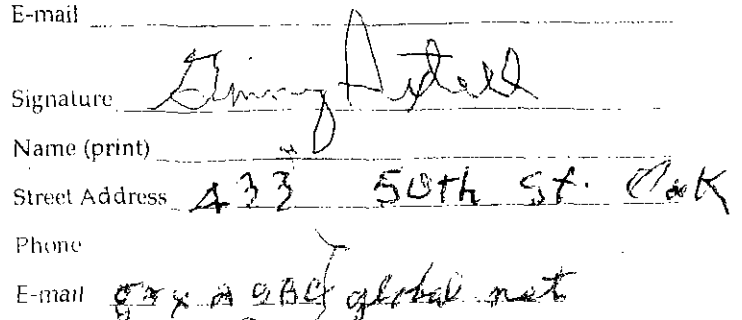 E-mail
Signature Ginny
Name (print)
Street Address 433 50th St. Oak
Phone
E-mail global net